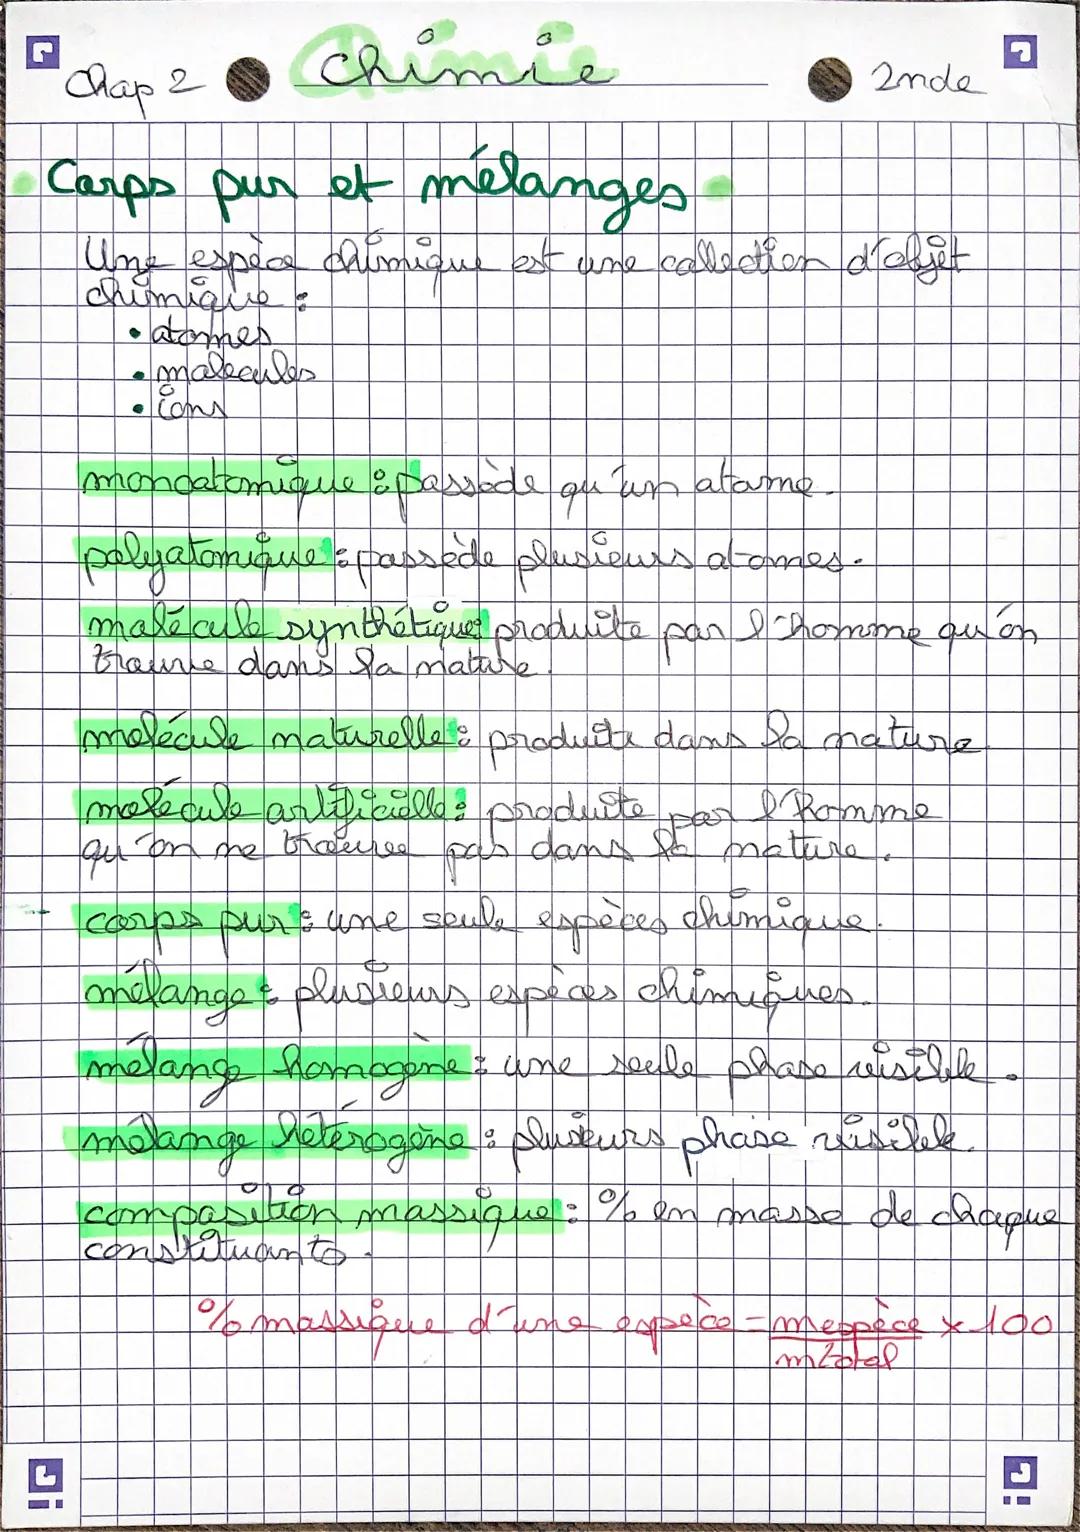 Chap 2 Chimie 2nde
Corps pur et mélanges
Une espèce chimique est une collection d'objet
chimique :
• atomes
• molécules
• ions
monoatomique : possède qu'un atome.
polyatomique : possède plusieurs atomes.
molécule synthétique : produite par l'homme qu'on
trouve dans la nature.
molécule naturelle : produite dans la nature
molécule artificielle : produite par l'homme
qu'on ne trouve pas dans la nature.
corps pur : une seule espèces chimique.
mélange : plusieurs espèces chimiques.
mélange homogène : une seule phase visible.
mélange hétérogène : plusieurs phase visible.
composition massique : % en masse de chaque
constituants.
% massique d'une espèce = mespèce × 100
mtotal